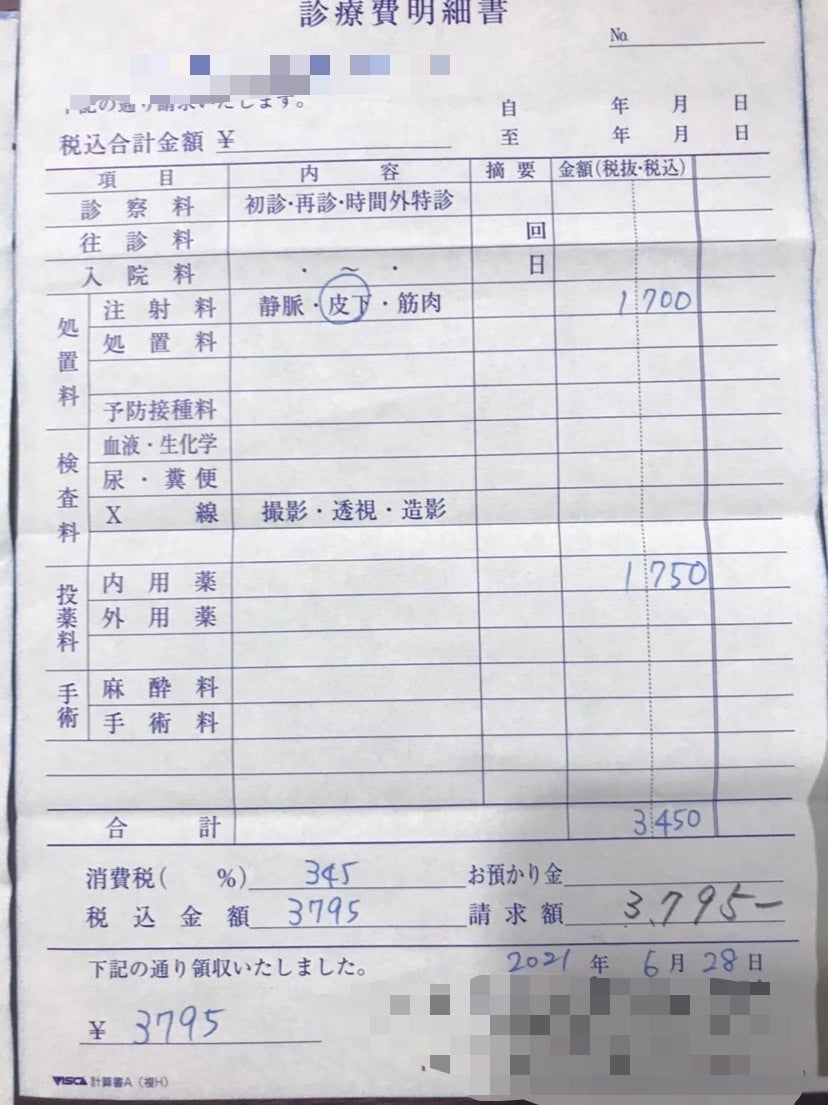 診療費明細書
№
下記の通り請求いたします。
自 年 月 日
税込合計金額 ¥
至 年 月 日
項目 内容 摘要 金額(税抜・税込)
診察料 初診・再診・時間外特診
往診料 回
入院料 ・ ~ ・ 日
処置料
注射料 静脈・皮下・筋肉 1700
処置料
予防接種料
検査料
血液・生化学
尿・糞便
X線 撮影・透視・造影
投薬料
内用薬 1750
外用薬
手術
麻酔料
手術料
合計 3450
消費税( %) 345 お預かり金
税込金額 3795 請求額 3,795-
下記の通り領収いたしました。 2021年 6月 28日
¥ 3795
VISCA 計算書A(複H)